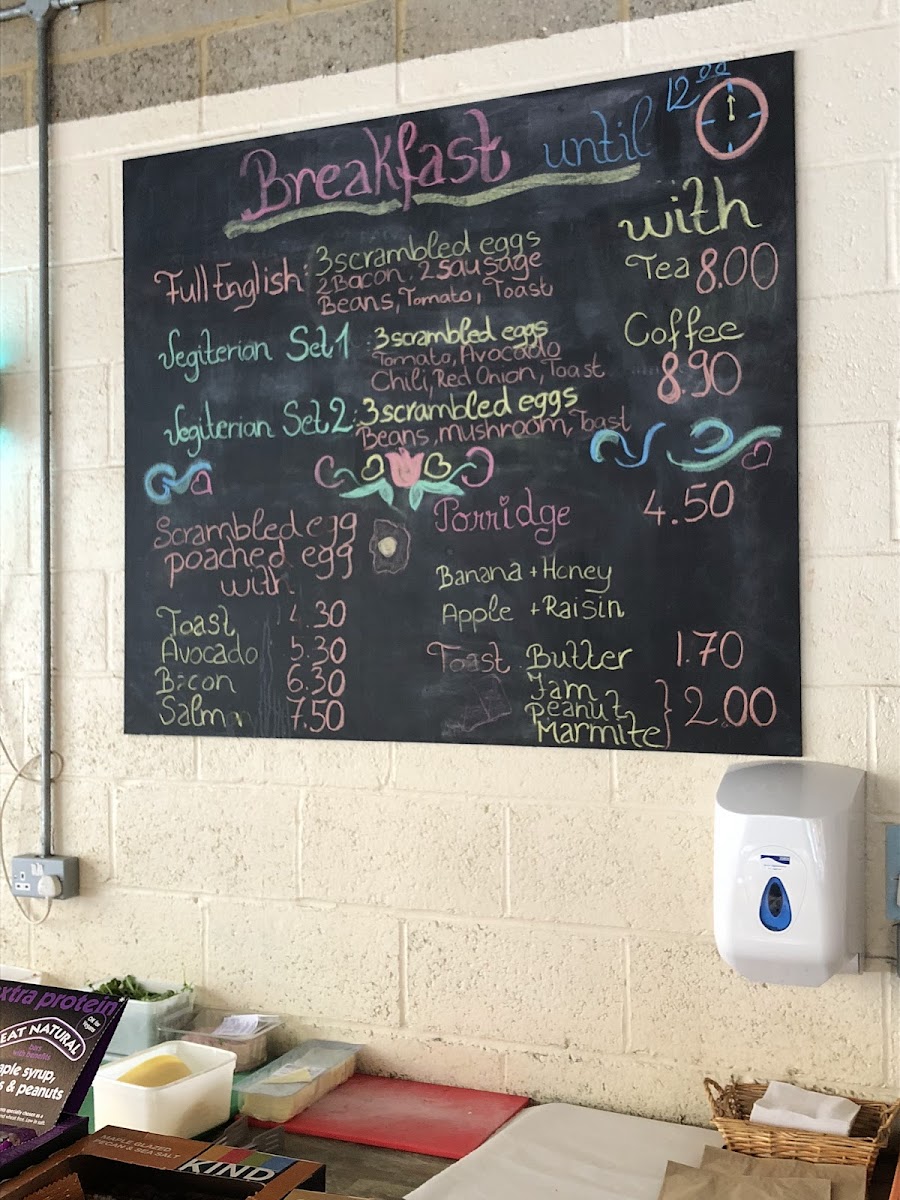 Breakfast until 12⁰⁰
with
Full English: 3 scrambled eggs
2 Bacon, 2 Sausage
Beans, Tomato, Toast
Tea 8.00
Vegiterian Set 1 : 3 scrambled eggs
Tomato, Avocado
Chili, Red Onion, Toast
Coffee
8.90
Vegiterian Set 2 : 3 scrambled eggs
Beans, mushroom, Toast
Scrambled egg
poached egg
with
Toast 4.30
Avocado 5.30
Bacon 6.30
Salman 7.50
Porridge 4.50
Banana + Honey
Apple + Raisin
Toast Butter 1.70
Jam
peanut
Marmite } 2.00
extra protein
EAT NATURAL
bars
with benefits
maple syrup,
& peanuts
MAPLE GLAZED
PECAN & SEA SALT
KIND